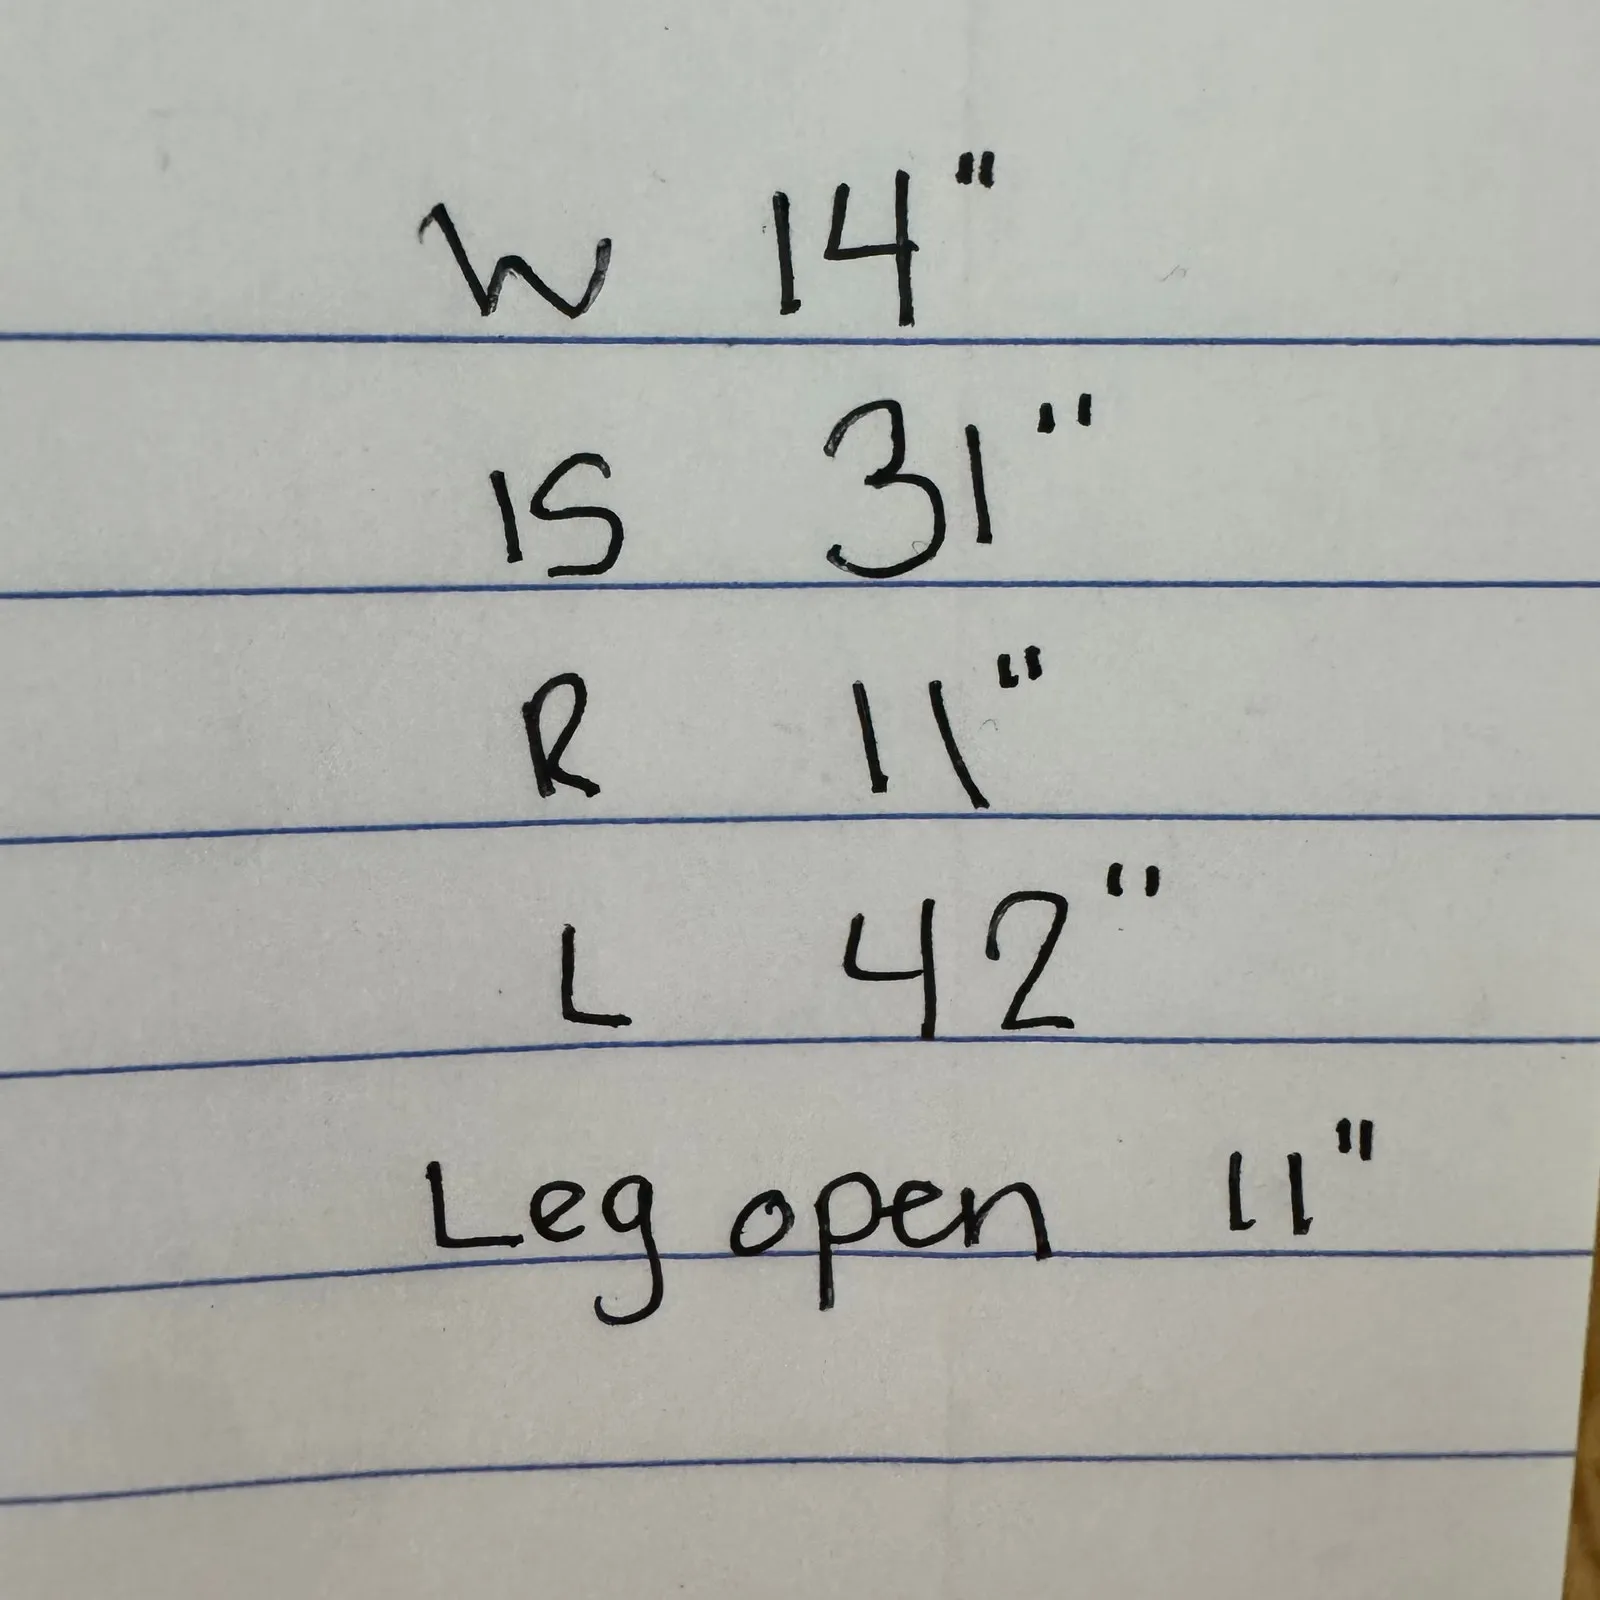 W 14"
IS 31"
R 11"
L 42"
Leg open 11"